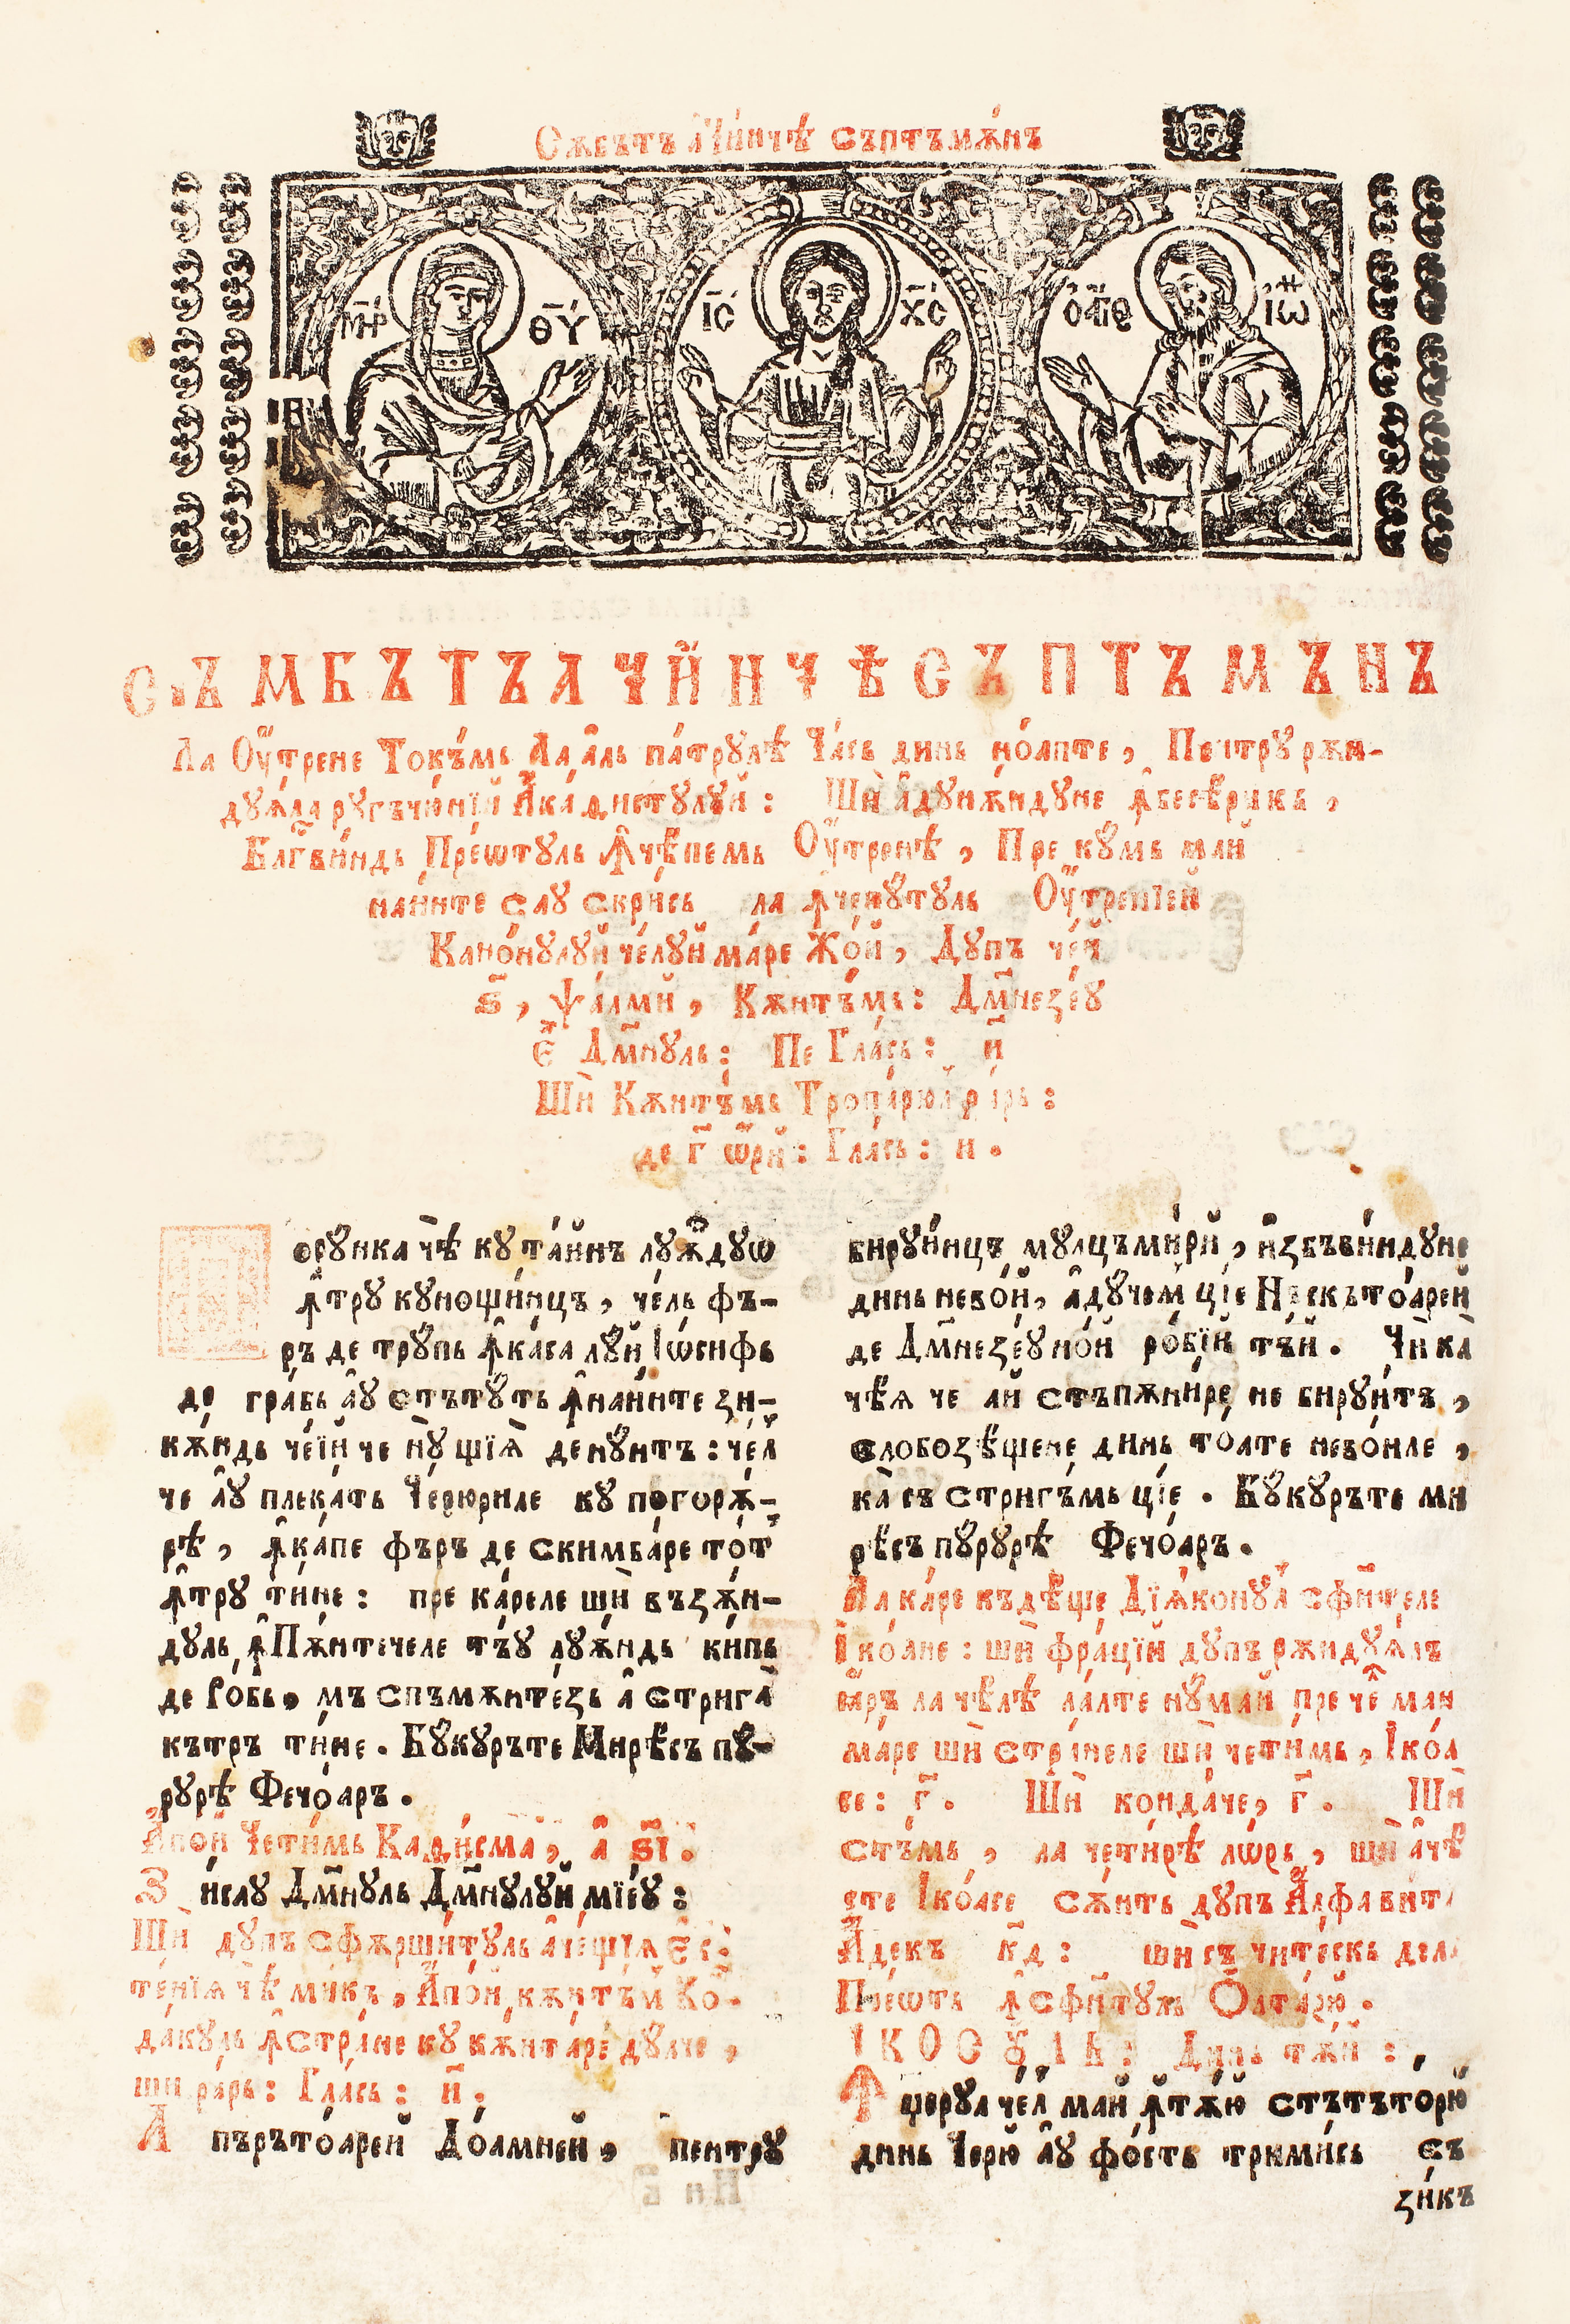 Сѫбътъ а҆чи́нчѣ съптъмѫ́нъ
М҃Р Ѳ҃Ѵ І҃С Х҃С Іѡ҃
СЪМБЪТЪ А ЧИ́НЧѢ СЪПТЪМЪНЪ
Ла Оу҆́трене Токъ́мь Ла а҆ль па́трулѣ Ча́сь динь но́апте, Пентру рѫн-
дуꙗ́ла ругъчю́нїй А҆ка́дистулуй: Шѝ а҆дунѫ́ндуне ꙟ҆бесѣ́рикъ,
Бл҃гви́ндь Преѡтуль Ꙟ҆чѣ́пемь Оу҆́тренѣ, Пре ку́мь май
наи́нте сау скри́сь ла ꙟ҆чепу́туль Оу҆́тренїей
Кано́нулуй че́луй ма́ре Жо́й, Дупъ че́й
ѕ҃, ѱа́лмй, Кѫнтъ́мь: Дм҃незе́у
є҆ Дм҃нуль: Пе Гла́сь: и҃
Шѝ Кѫнтъ́мь Тропа́рюл ра́рь:
де г҃ ѡ҆рй: Гла́сь: и.
ору́нка чѣ ку та́йнъ луѫ́дуѡ
ꙟ҆тру куношїи́нцъ, че́ль фъ-
ръ де тру́пь ꙟ҆ка́са лу́й І҆ѡ́сифь
де гра́бь а҆у стъту́ть ꙟ҆наи́нте зи-
кѫ́ндь че́їй че ну щїꙗ̀ дену́нтъ: че́л
че а҆у плека́ть Че́рюриле ку погорѫ́-
рѣ, ꙟ҆ка́пе фъръ де скимба́ре то́т
ꙟ҆тру ти́не: пре ка́реле шѝ възѫ́н-
дуль ꙟ҆Пѫ́нтечеле тъ́у луѫ́ндь ки́пь
де Ро́бь, мъ спъмѫнте́зь а҆ стрига̀
кътръ ти́не. Бу́куръте Мирѣ́съ пу́-
рурѣ Фечо́аръ.
А҆по́й Чети́мь Кади́сма, а҆ ѕ҃і.
З и́селу Дм҃нуль Дм҃нулуй мїе́у:
Шѝ ду́пъ сфѫрши́туль
те́нїꙗ чѣ ми́къ, А҆по́й кѫнтъ́м Ко҃-
да́куль ꙟ҆стра́не ку кѫнта́ре ду́лче,
шѝ ра́рь: Гла́сь: и҃.
А пърътоарей До́амней, пентру
бируи́нцъ мулцъми́рй, и҆збъви́ндуне
динь нево́й, а҆ду́чем ці́е Неекъто́арей
де Дм҃незе́у но́й ро́бїй тъ́й. Чѝ ка̀
чѣ́ꙗ че а́й стъпѫни́ре не бируи́тъ,
слобозѣ́щене динь тоате нево́иле,
ка̀ съ стригъ́мь ці́е. Бу́куръте ми
рѣ́съ пу́рурѣ Фечо́аръ.
Ла ка́ре къдѣ́ще Дїꙗ́конул сфи҃теле
І҆ко́ане: шѝ фра́ції дупъ рѫндуꙗ́лъ
и҆аръ ла чѣ́лѣ ла́лте ну́май пре че́ май
ма́ре шѝ стра́неле шѝ чети́мь, І҆ко́а
се: г҃. Шѝ конда́че, г҃. Шѝ
стъ́мь, ла че́тирѣ лѡ́рь, шѝ а҆чѣ́
сте І҆ко́асе сѫ́нть дупъ А҆лфавита
А҆декъ к҃д: шѝ съ чите́скь дела
Прео́ть ꙟ҆сфи҃туль Ѻ҆лта́рю.
ІКОСУЛЬ: Динь тѫ́й:
Ꙟ҆ церул че́л май ꙟ҆тѫ́ю стътъто́рю
динь Че́рю а҆у фо́сть трими́сь съ
зи́къ